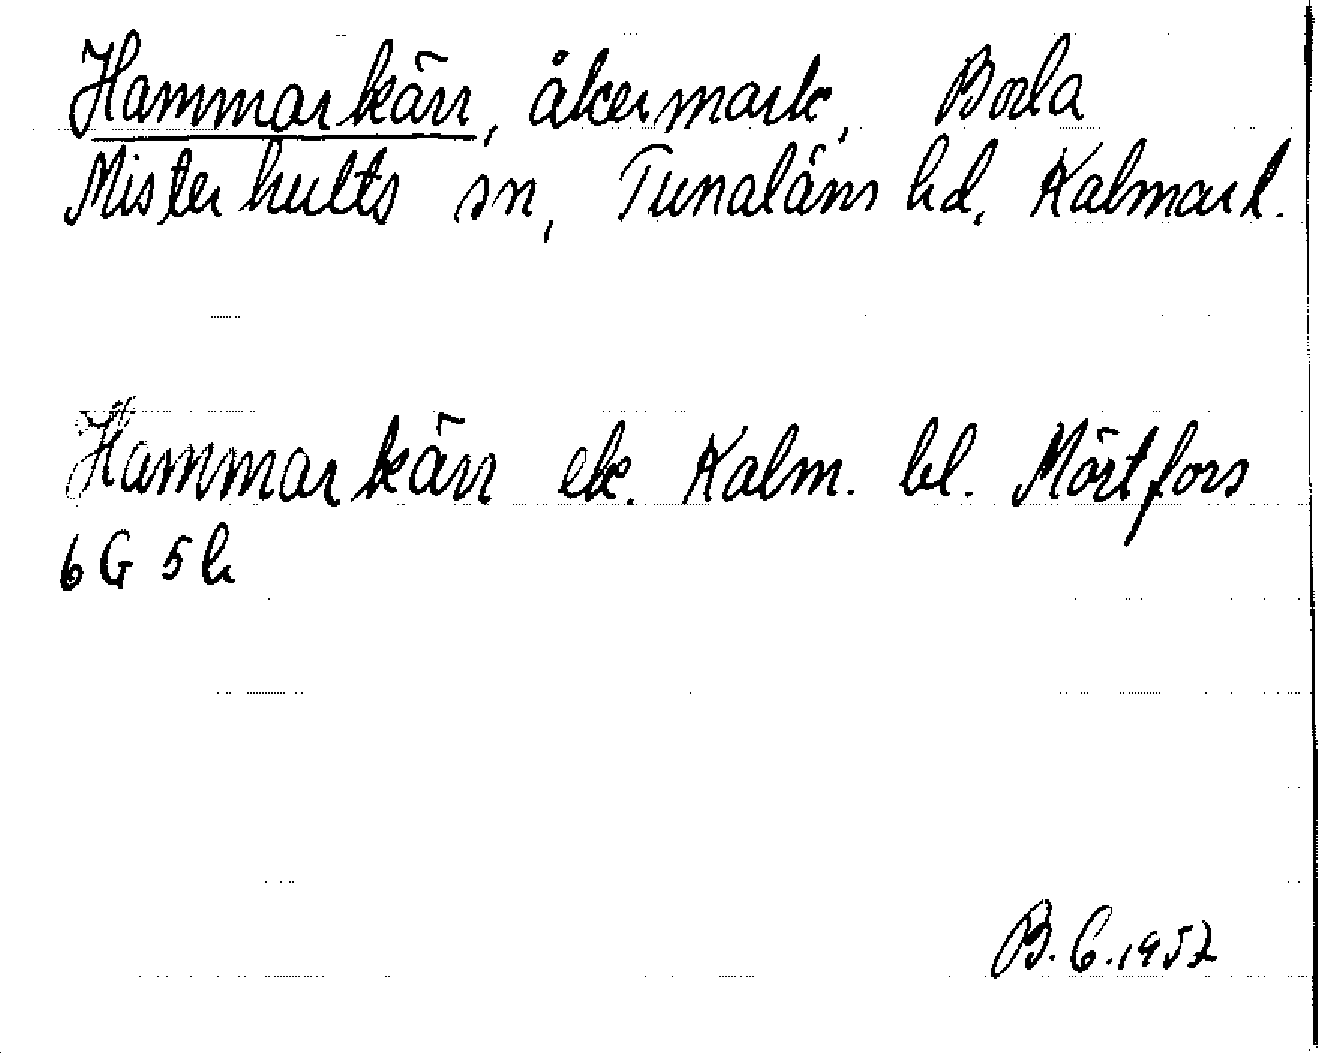 Hammarkärr, åkermark, Boda
Misterhults sn, Tunaläns hd, Kalmar l.
Hammarkärr ek. Kalm. bl. Mörtfors
6 G 5 h
B. G. 1952